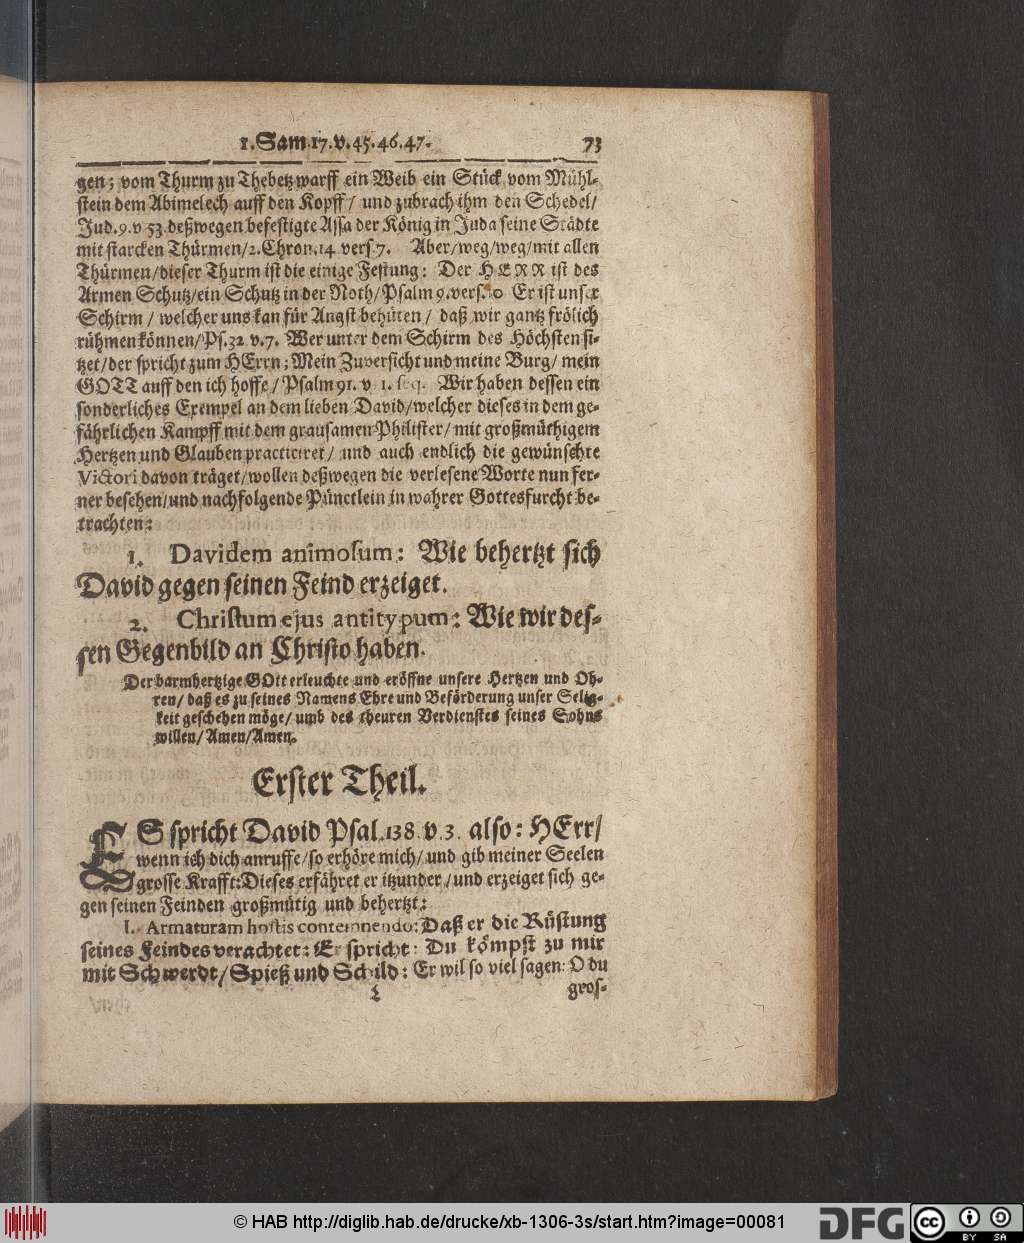 1. Sam. 17. v. 45. 46. 47. 73
gen; vom Thurm zu Thebetz warff ein Weib ein Stück vom Mühl-
stein dem Abimelech auff den Kopff / und zubrach ihm den Schedel/
Jud. 9. v 53. deßwegen befestigte Assa der König in Juda seine Städte
mit starcken Thürmen/2. Chron. 14 vers. 7. Aber/weg/weg/mit allen
Thürmen/dieser Thurm ist die einige Festung: Der HERR ist des
Armen Schutz/ein Schutz in der Noth/Psalm 9. vers. Er ist unser
Schirm / welcher uns kan für Angst behüten / daß wir gantz frölich
rühmen können/Ps. 32 v. 7. Wer unter dem Schirm des Höchsten si-
tzet/der spricht zum HErrn; Mein Zuversicht und meine Burg/ mein
GOTT auff den ich hoffe/Psalm 91. v. 1. seq. Wir haben dessen ein
sonderliches Exempel an dem lieben David/welcher dieses in dem ge-
fährlichen Kampff mit dem grausamen Philister/mit großmüthigem
Hertzen und Glauben practiciret/ und auch endlich die gewünschte
Victori davon träget/wollen deßwegen die verlesene Worte nun fer-
ner besehen/und nachfolgende Pünctlein in wahrer Gottesfurcht be-
trachten:
1. Davidem animosum: Wie behertzt sich
David gegen seinen Feind erzeiget.
2. Christum ejus antitypum: Wie wir des-
sen Gegenbild an Christo haben.
Der barmhertzige GOtt erleuchte und eröffne unsere Hertzen und Oh-
ren/ daß es zu seines Namens Ehre und Beförderung unser Selig-
keit geschehen möge/ umb des theuren Verdienstes seines Sohns
willen/ Amen/Amen.
Erster Theil.
ES spricht David Psal. 138. v. 3. also: HErr/
wenn ich dich anruffe/so erhöre mich/und gib meiner Seelen
grosse Krafft: Dieses erfähret er itzunder/und erzeiget sich ge-
gen seinen Feinden großmütig und behertzt:
I. Armaturam hostis contemnendo: Daß er die Rüstung
seines Feindes verachtet: Er spricht: Du kömpst zu mir
mit Schwerdt/Spieß und Schild: Er wil so viel sagen: O du
gros-
© HAB http://diglib.hab.de/drucke/xb-1306-3s/start.htm?image=00081
DFG
cc BY SA